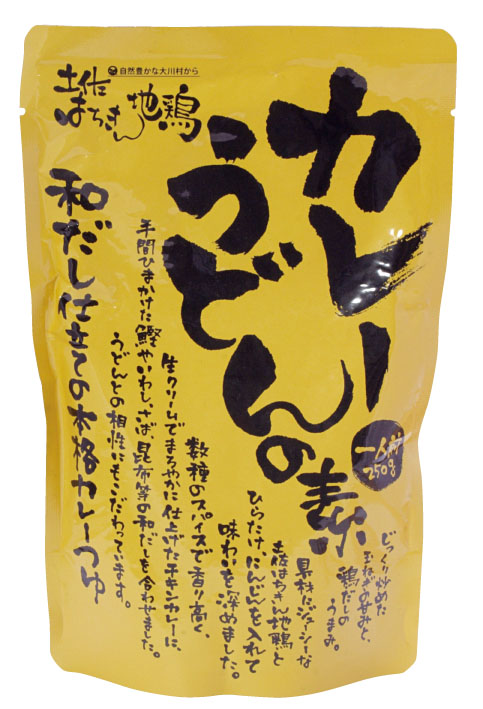 自然豊かな大川村から
土佐
はちきん地鶏
カレー
うどんの素
一人前
250g
じっくり炒めた
玉ねぎの甘みと、
鶏だしの
うまみ。
具材にジューシーな
土佐はちきん地鶏と
ひらたけ、にんじんを入れて
味わいを深めました。
数種のスパイスで香り高く、
生クリームでまろやかに仕上げたチキンカレーに、
手間ひまかけた鰹やいわし、さば、昆布等の和だしを合わせました。
うどんとの相性にもこだわっています。
和だし仕立ての本格カレーつゆ